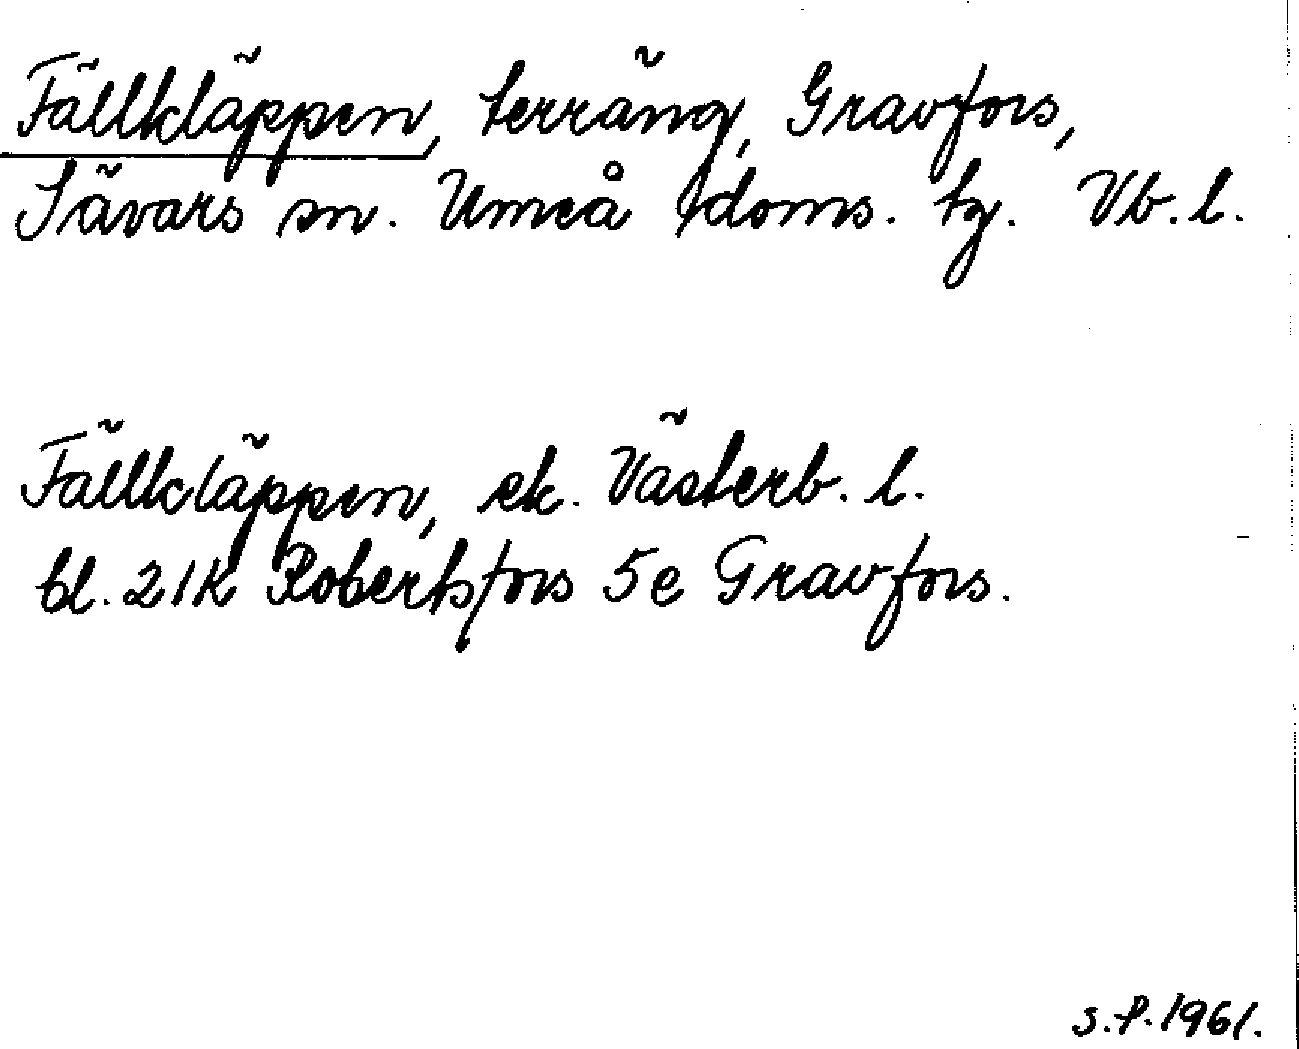 Fällkläppen, terräng, Gravfors,
Sävars sn. Umeå doms. tg. Vb. l.
Fällkläppen, ek. Västerb. l.
bl. 21K Robertsfors 5e Gravfors.
S.P. 1961.